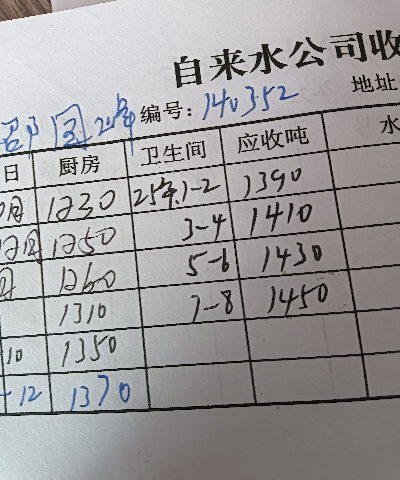 自来水公司收
园 25年 编号: 140352 地址
日 厨房 卫生间 应收吨 水
月 1230 25年.1-2 1390
12月 1250 3-4 1410
月 1260 5-6 1430
1310 7-8 1450
10 1350
-12 1370